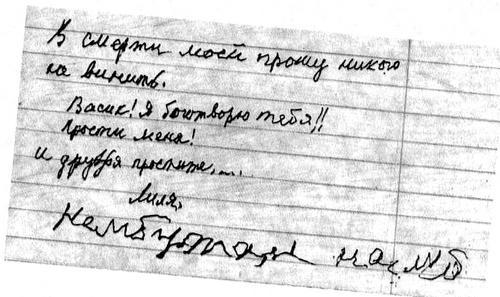 В смерти моей прошу никого
не винить.
Васик! Я боготворю тебя!!
Прости меня!
И друзья простите....
Лиля.
Нембутал нембу